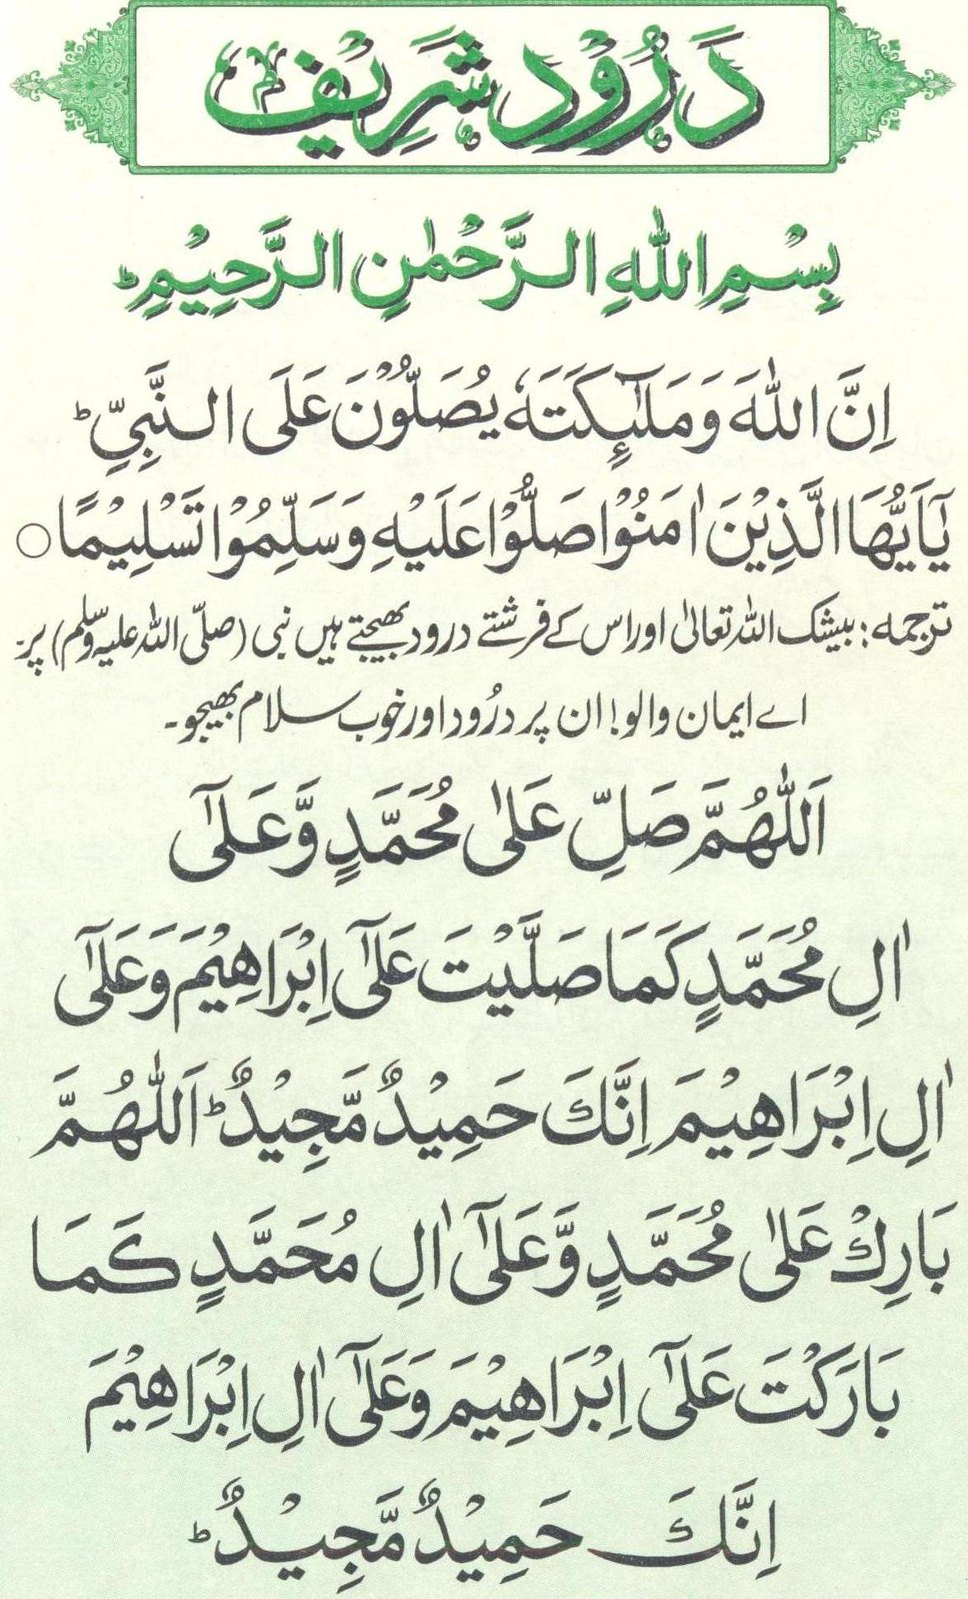 دَرُوْد شَرِیْف
بِسْمِ اللّٰهِ الرَّحْمٰنِ الرَّحِیْمِؕ
اِنَّ اللّٰهَ وَ مَلٰٓىِٕكَتَهٗ یُصَلُّوْنَ عَلَی النَّبِیِّؕ
یٰۤاَیُّهَا الَّذِیْنَ اٰمَنُوْا صَلُّوْا عَلَیْهِ وَ سَلِّمُوْا تَسْلِیْمًا○
ترجمہ: بیشک اللہ تعالیٰ اور اس کے فرشتے درود بھیجتے ہیں نبی (صلّی اللہ علیہ وسلم) پر۔
اے ایمان والو! ان پر درُود اور خوب سلام بھیجو۔
اَللّٰهُمَّ صَلِّ عَلٰی مُحَمَّدٍ وَّعَلٰۤی
اٰلِ مُحَمَّدٍ كَمَا صَلَّیْتَ عَلٰۤی اِبْرَاهِیْمَ وَعَلٰۤی
اٰلِ اِبْرَاهِیْمَ اِنَّكَ حَمِیْدٌ مَّجِیْدٌؕ اَللّٰهُمَّ
بَارِكْ عَلٰی مُحَمَّدٍ وَّعَلٰۤی اٰلِ مُحَمَّدٍ كَمَا
بَارَكْتَ عَلٰۤی اِبْرَاهِیْمَ وَعَلٰۤی اٰلِ اِبْرَاهِیْمَ
اِنَّكَ حَمِیْدٌ مَّجِیْدٌؕ